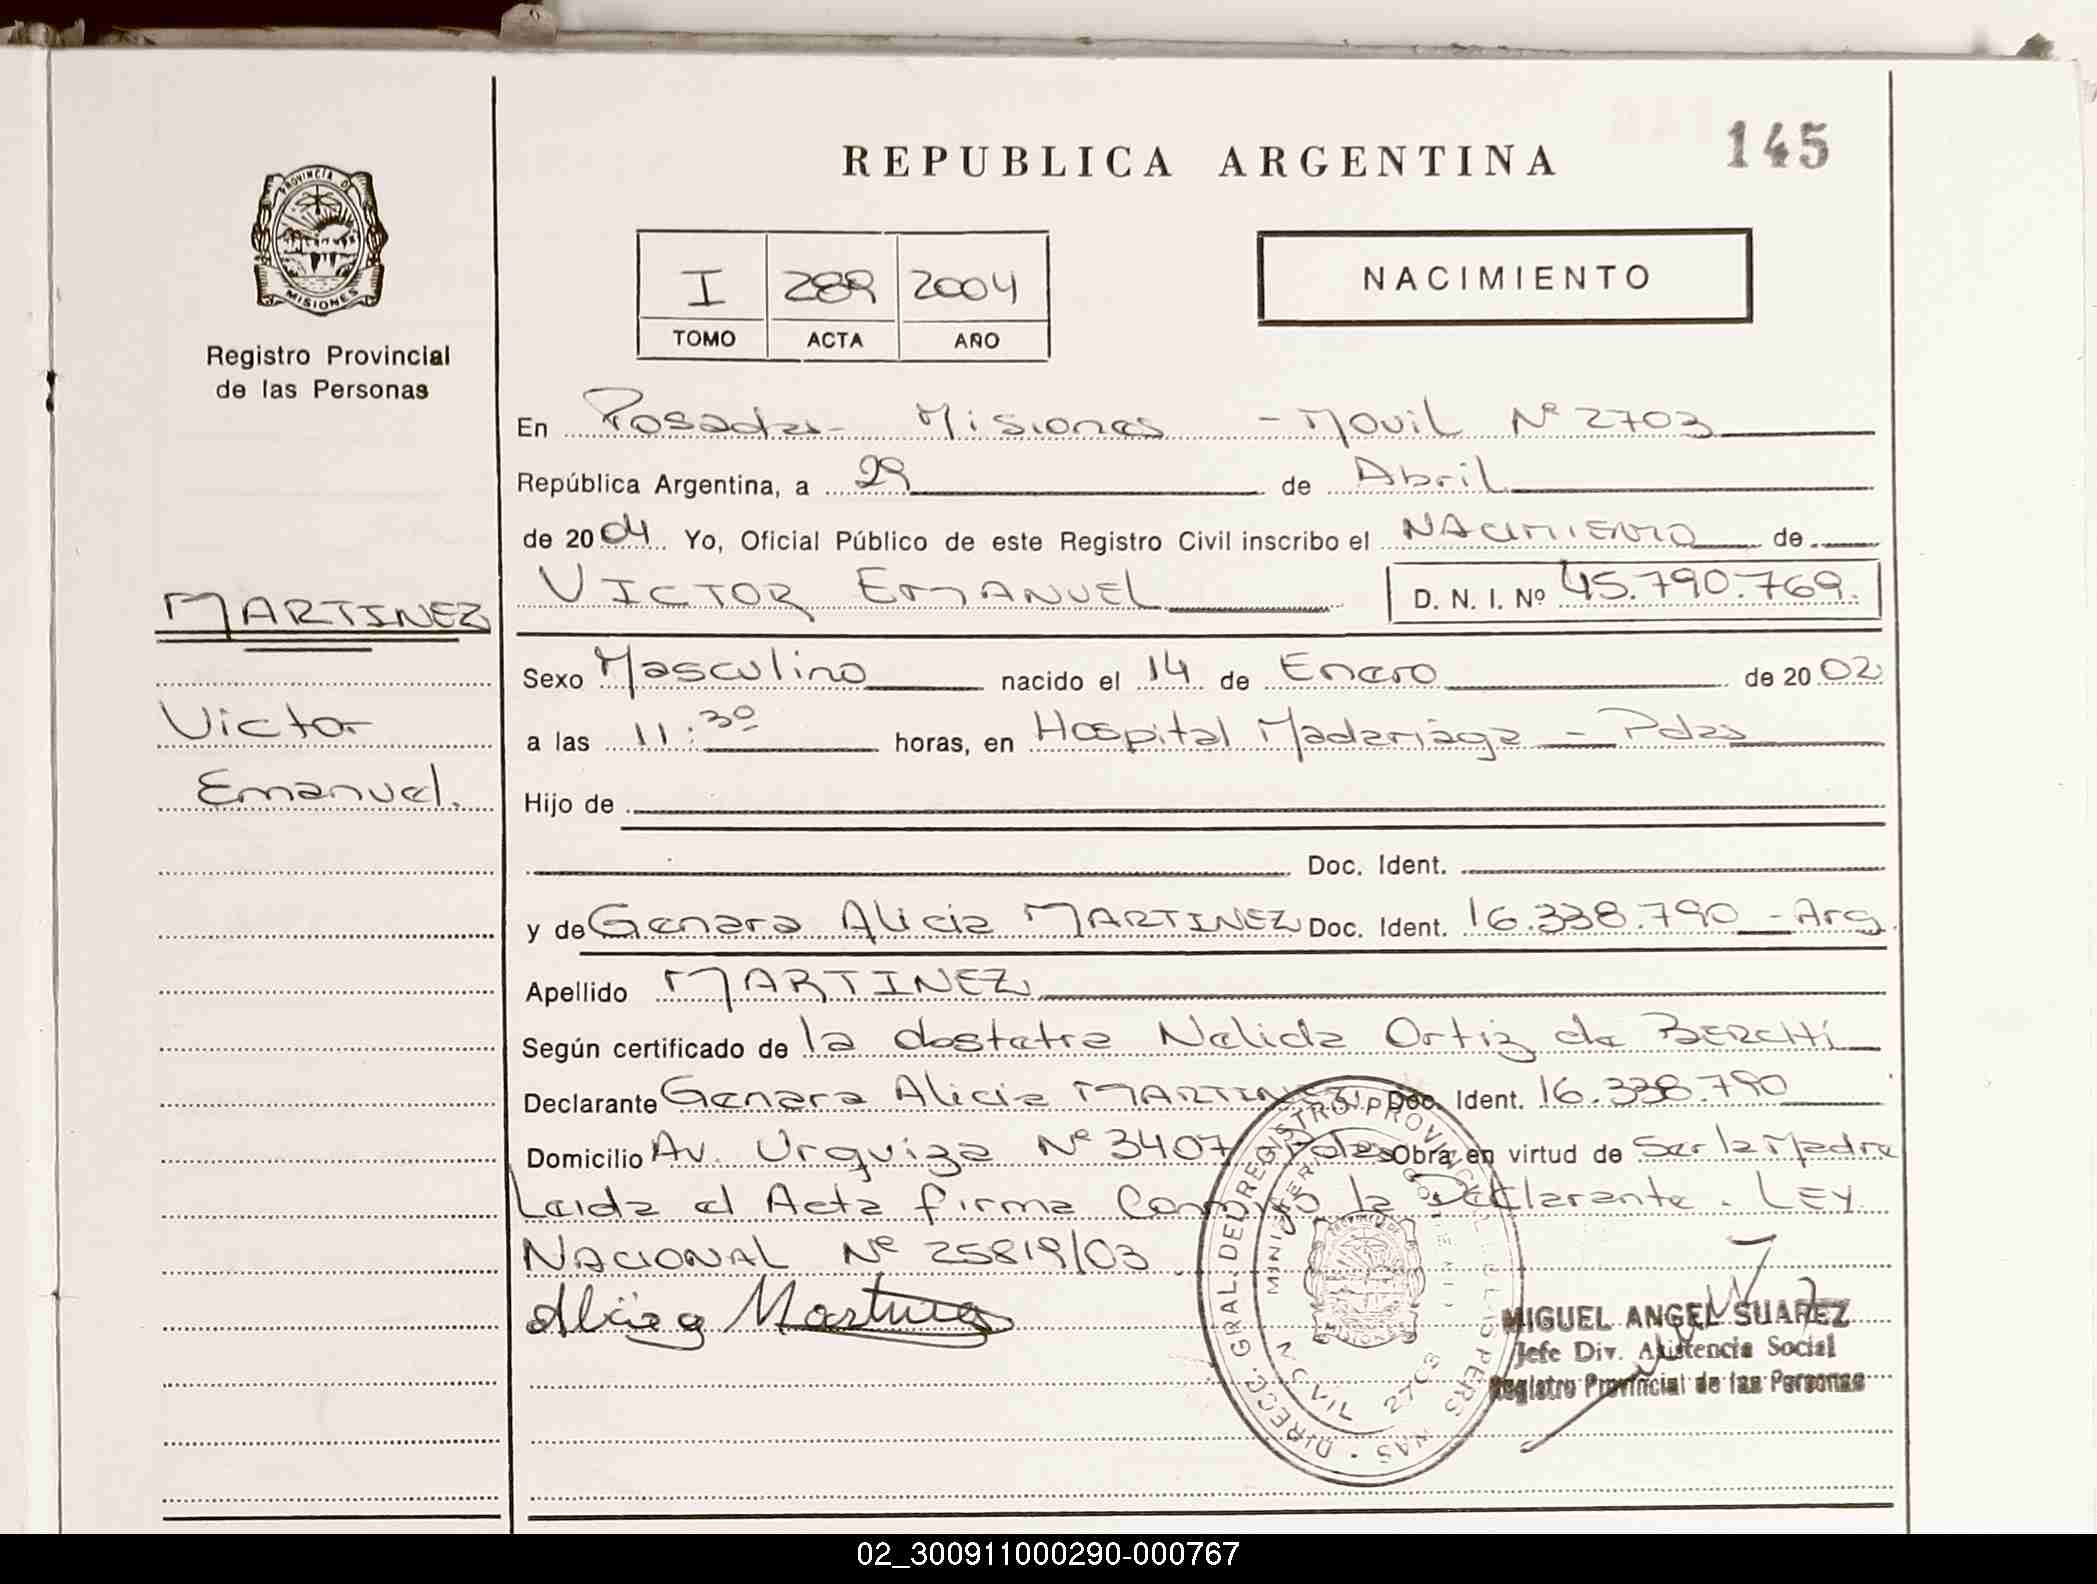 145
REPUBLICA ARGENTINA
PROVINCIA DE
MISIONES
Registro Provincial
de las Personas
I 289 2004
TOMO ACTA AÑO
NACIMIENTO
En Posadas - Misiones - Movil Nº 2703
República Argentina, a 29 de Abril
de 2004 Yo, Oficial Público de este Registro Civil inscribo el NACIMIENTO de
VICTOR EMANUEL D. N. I. Nº 45.790.769.
MARTINEZ
Victor
Emanuel.
Sexo Masculino nacido el 14 de Enero de 2002
a las 11:30 horas, en Hospital Madariaga - Pdas
Hijo de
Doc. Ident.
y de Genara Alicia MARTINEZ Doc. Ident. 16.338.790 - Arg.
Apellido MARTINEZ
Según certificado de la obstetra Nelida Ortiz de BERCHI
Declarante Genara Alicia MARTINEZ Doc. Ident. 16.338.790
Domicilio Av. Urquiza Nº 3407 Pdas Obra en virtud de Ser la Madre
Leida el Acta firma Conmigo la Declarante. LEY
NACIONAL Nº 25819/03
Alicia Martinez
DIRECC. GRAL. DEL REGISTRO PROVINCIAL DE LAS PERSONAS
MOVIL 2703
MIGUEL ANGEL SUAREZ
Jefe Div. Asistencia Social
Registro Provincial de las Personas
02_300911000290-000767